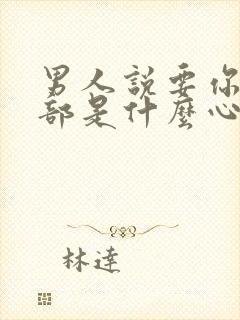 男人說要你
部是什麼心
林達